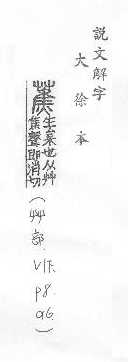 説文解字
大徐本
蕉
生枲也从艸
焦聲即消切
(艸部. V1下. p8. a6.)